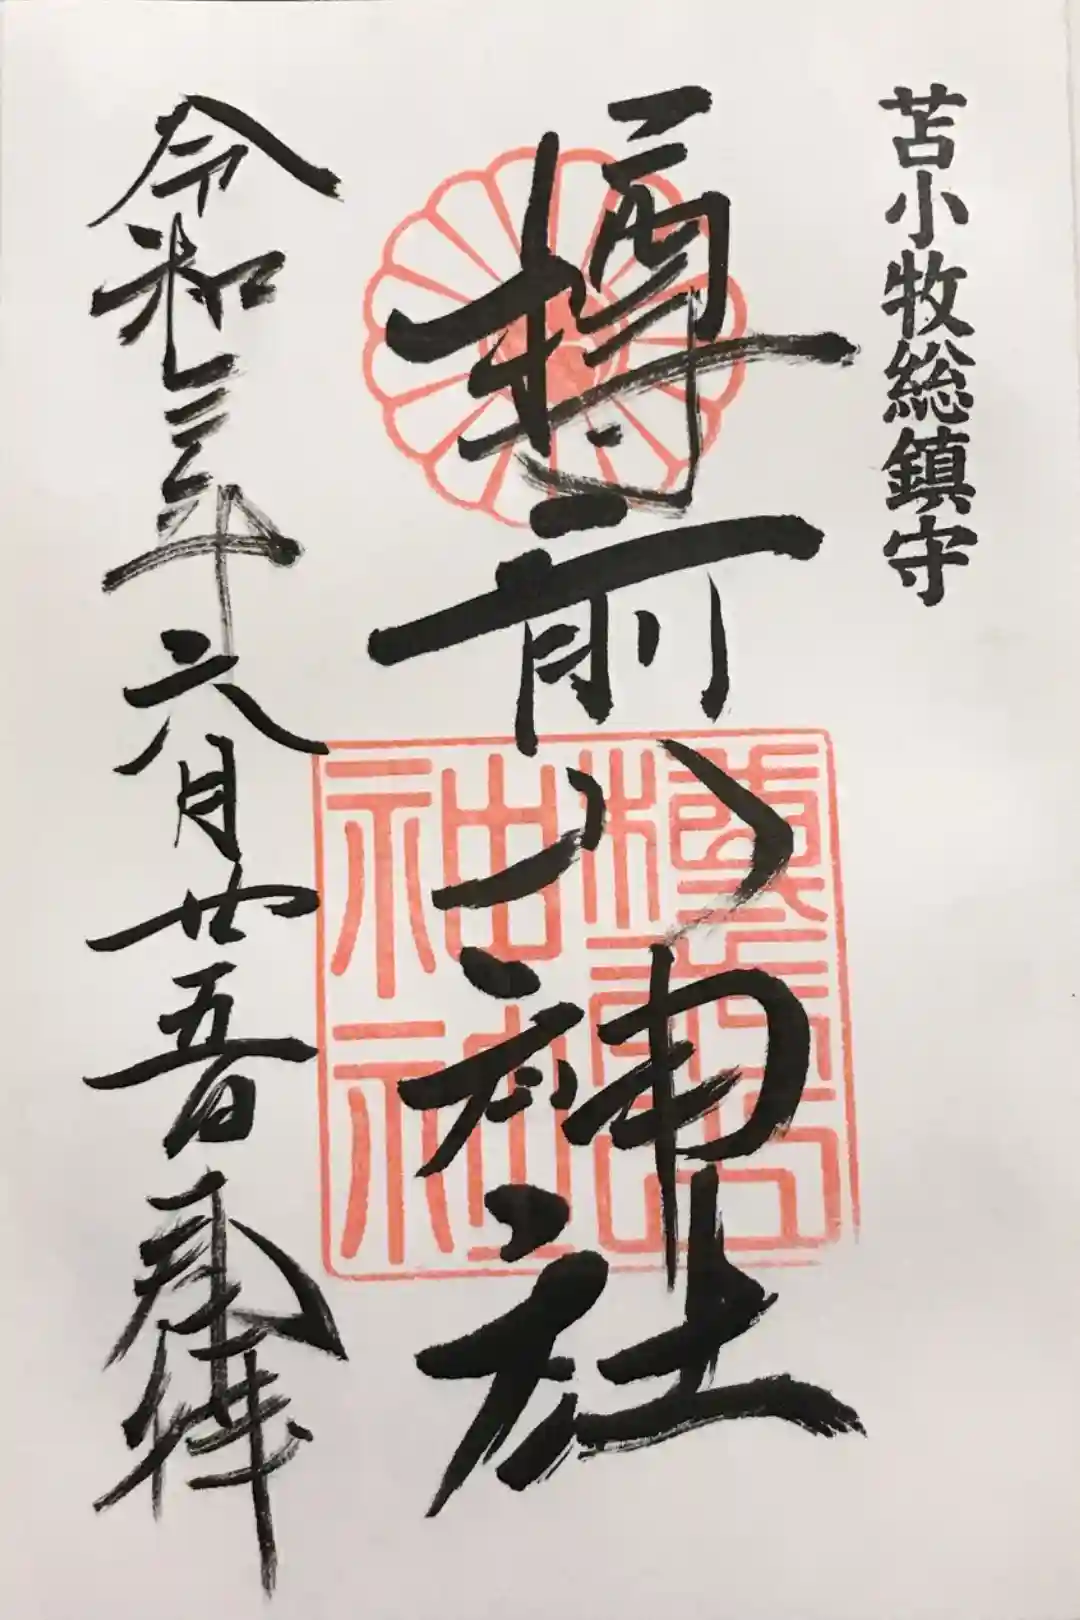 苫小牧総鎮守
樽前山神社
令和三年六月廿五日参拝
樽前山神社